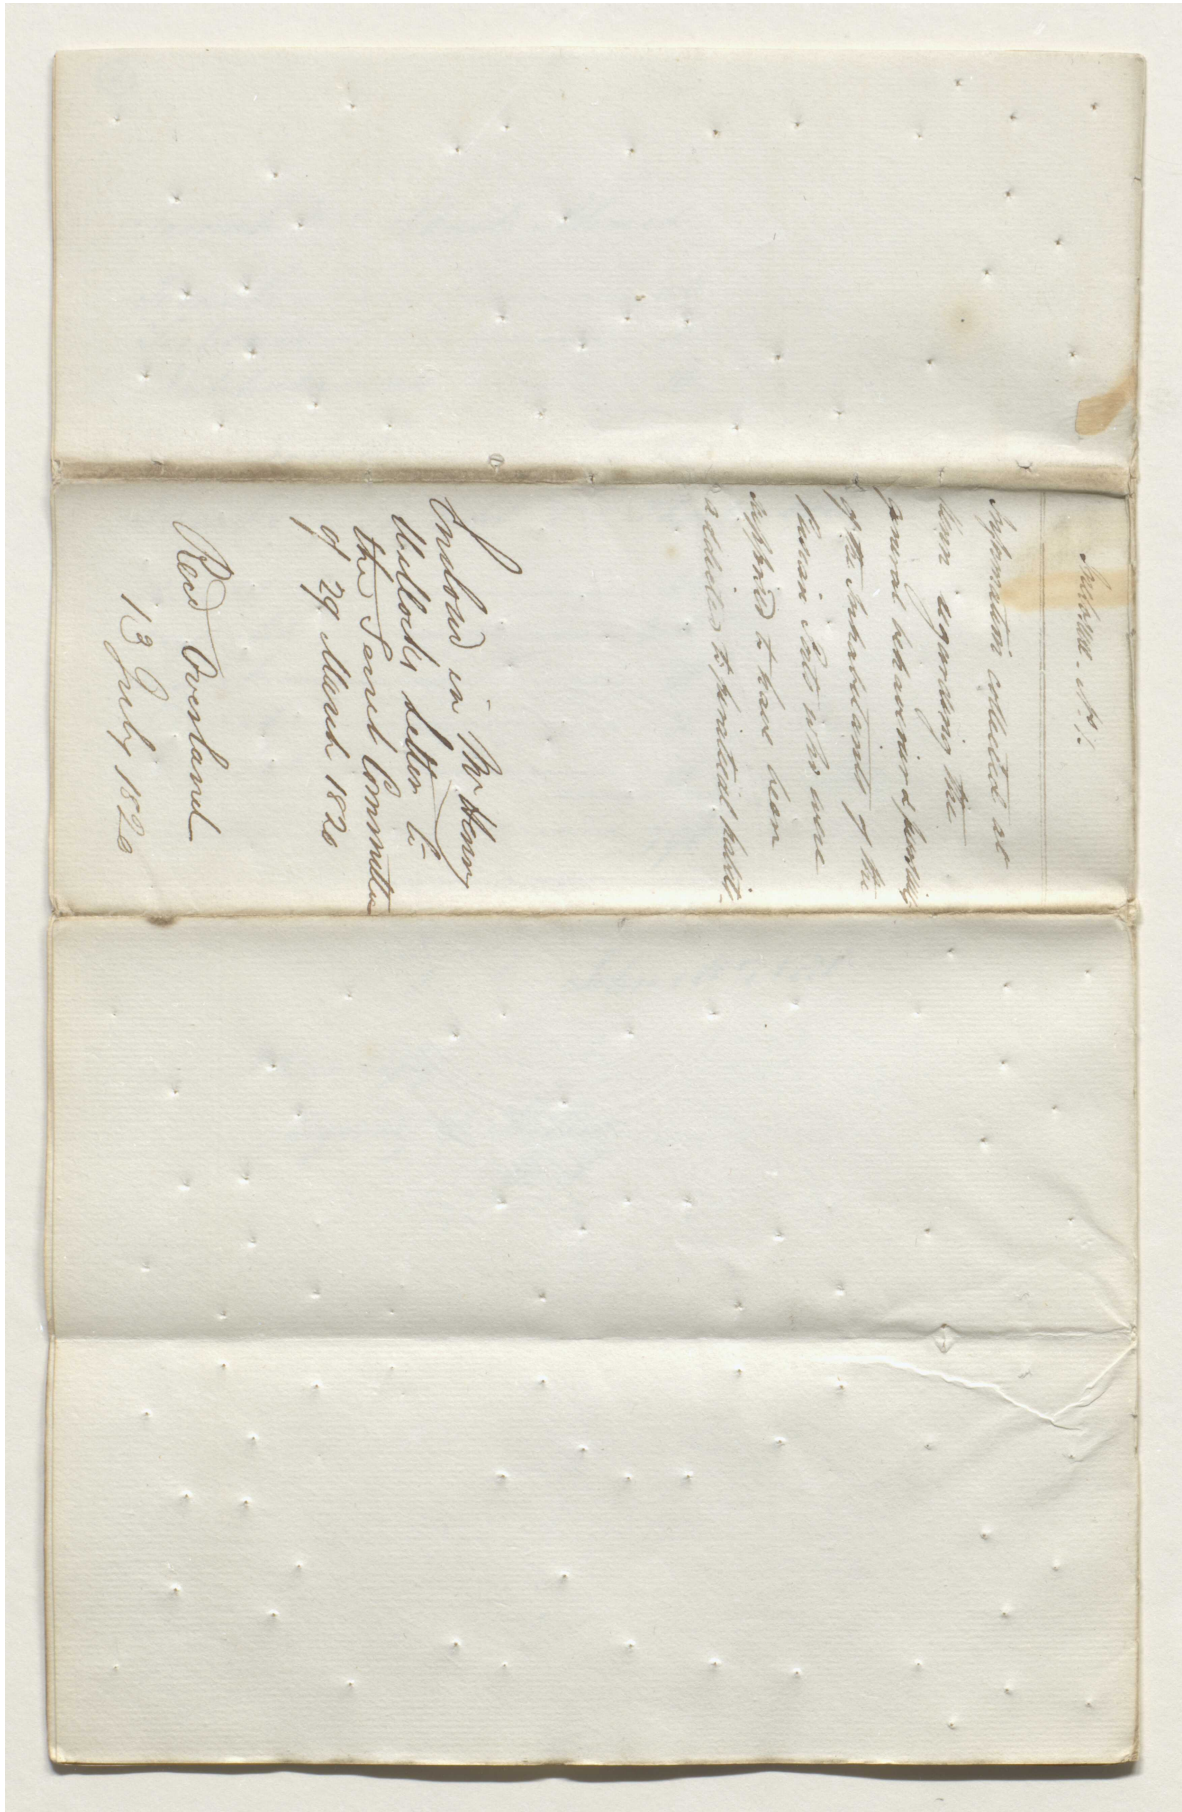 Inclosure. No. 1.
Information collected at
regarding the
general behaviour &
of the Inhabitants of the
Persian Ports who were
supposed to have been
addicted to piratical habits.
Enclosed in Mr Henry
Willock's Letter to
the Secret Committee
of 29 March 1820
Recd Overland
13 July 1820